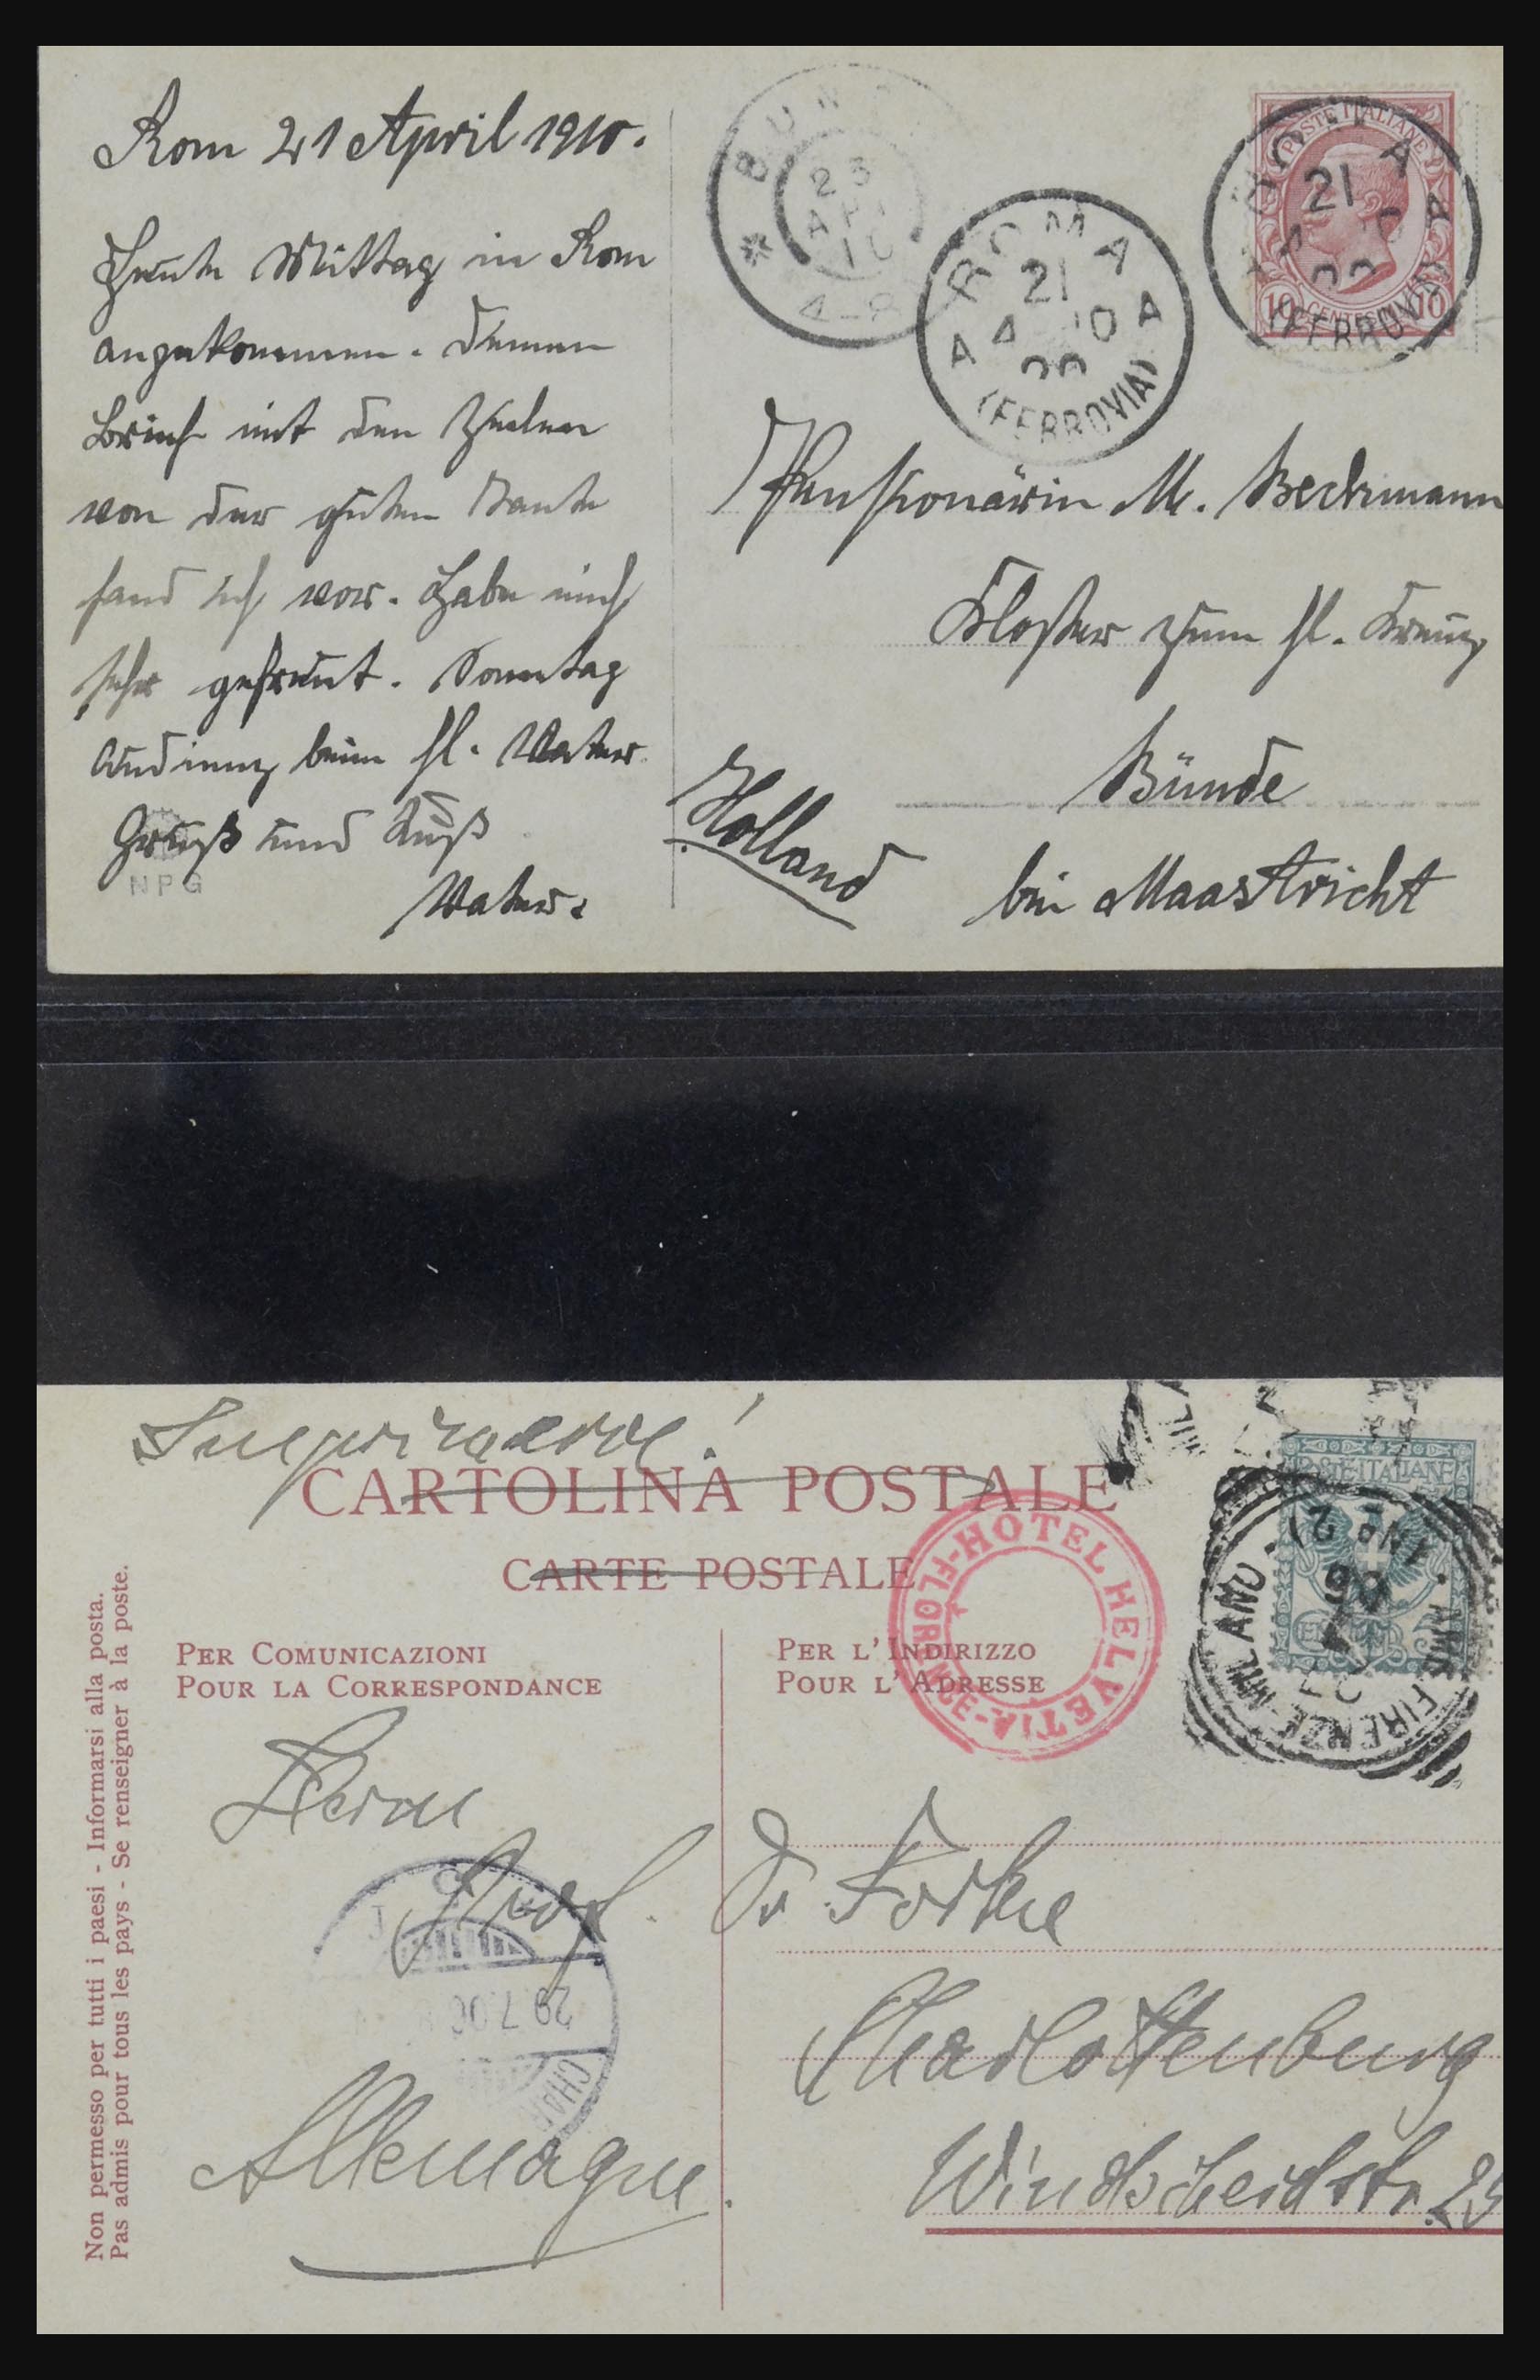 Rom 21 April 1910.
Heute Mittag in Rom
angekommen. Deinen
Brief mit den Zeilen
von der guten Tante
fand ich vor. Habe mich
sehr gefreut. Sonntag
Audienz beim hl. Vater.
Gruß und Kuß
Vater.
NPG
23
AP
10
4-8
ROMA
21
4 10
A A
(FERROVIA)
POSTE ITALIANE
10 CENTESIMI 10
21
(FERROVIA)
Pensionärin M. Beckmann
Kloster zum hl. Kreuz
Bünde
Holland
bei Maastricht
CARTOLINA POSTALE
CARTE POSTALE
HOTEL HELVETIA-FLORENCE-
POSTE ITALIANE
FIRENZE-MILANO
PER COMUNICAZIONI
POUR LA CORRESPONDANCE
PER L'INDIRIZZO
POUR L'ADRESSE
Non permesso per tutti i paesi - Informarsi alla posta.
Pas admis pour tous les pays - Se renseigner à la poste.
Herrn
Prof. Dr Forke
29.7.06
Charlottenburg
Allemagne.
Windscheidstr.